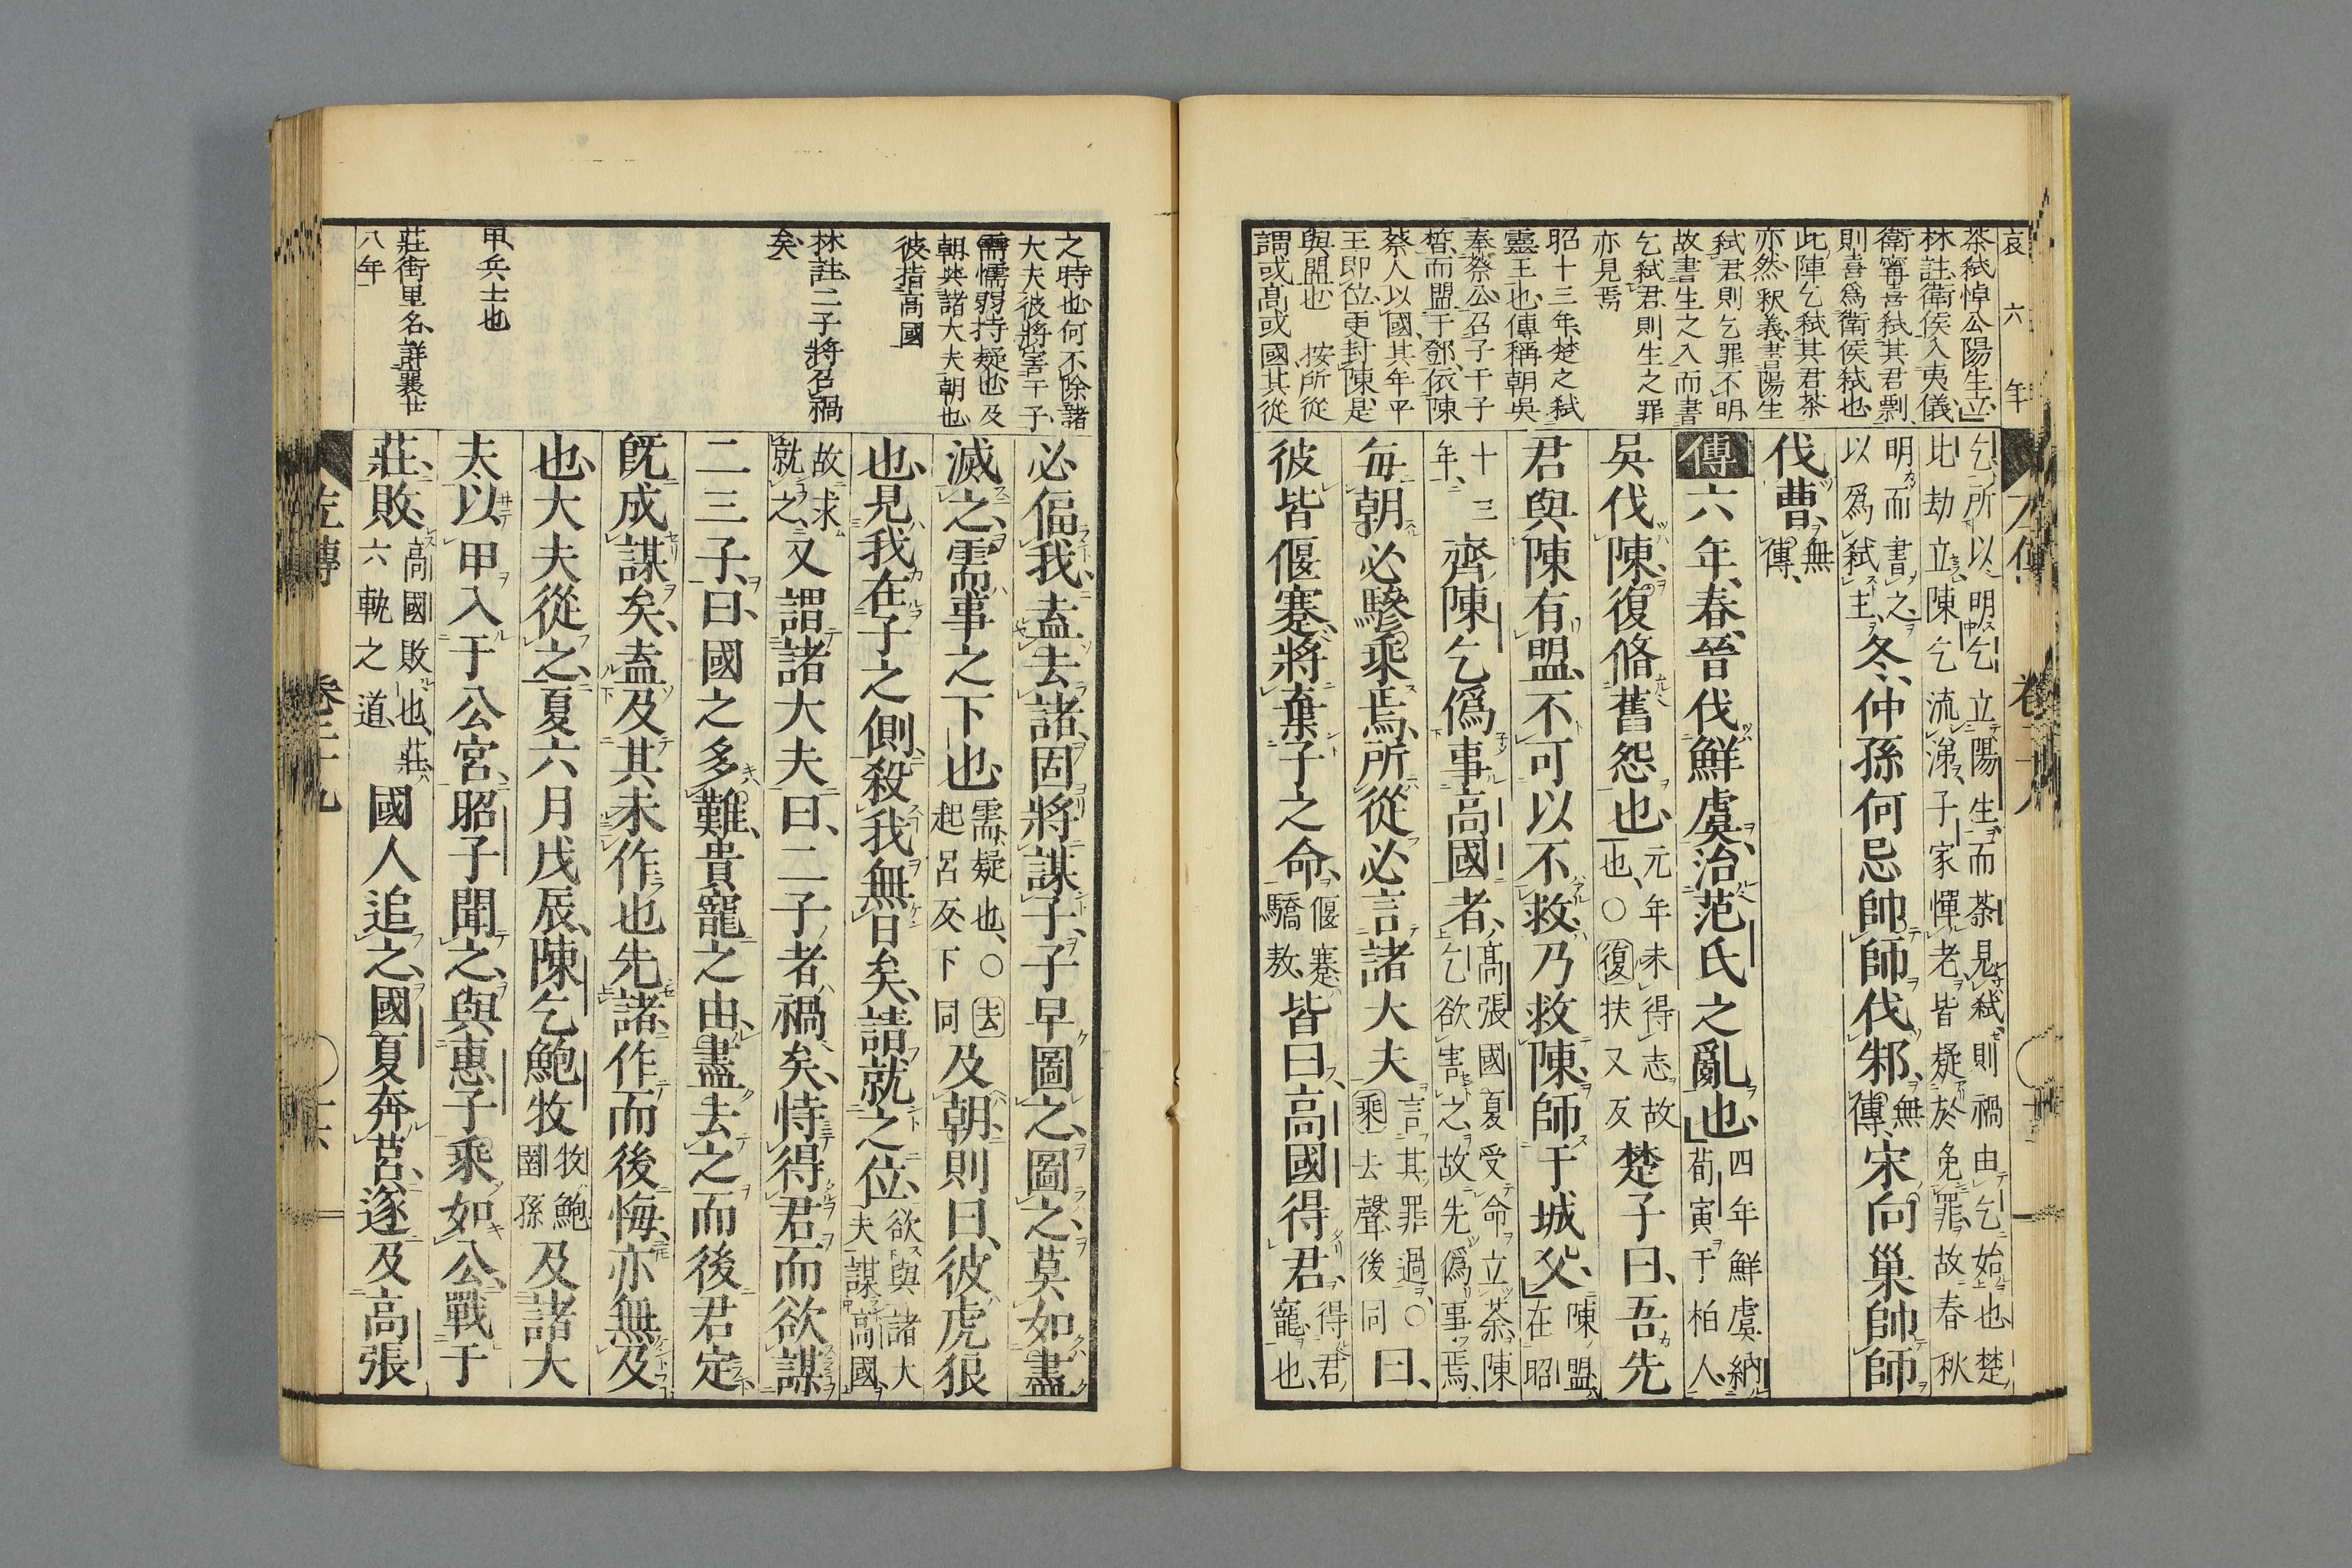 哀六年
荼弑悼公陽生立
林註衛侯入夷儀
衛甯喜弑其君剽
則喜爲衛侯弑也
此陳乞弑其君荼
亦然釈義書陽生
弑君則乞罪不明
故書生之入而書
乞弑君則生之罪
亦見焉
昭十三年楚之弑
靈王也傳稱朝吳
奉蔡公召子干子
晳而盟于鄧依陳
蔡人以國其年平
王即位更封陳是
與盟也 按所從
謂或高或國其從
乞所以明乞立陽生而荼見弑則禍由乞始也楚
比劫立陳乞流涕子家憚老皆疑於免罪故春秋
明而書之以爲弑主冬仲孫何忌帥師伐邾無傳宋向巢帥師
伐曹無傳
傳六年春晉伐鮮虞治范氏之亂也四年鮮虞納荀寅于柏人
吳伐陳復脩舊怨也元年未得志故也○復扶又反楚子曰吾先
君與陳有盟不可以不救乃救陳師于城父陳盟在昭
十三年齊陳乞僞事高國者高張國夏受命立荼陳乞欲害之故先僞事焉
每朝必驂乘焉所從必言諸大夫言其罪過○乘去聲後同曰
彼皆偃蹇將棄子之命偃蹇驕敖皆曰高國得君得君寵也
之時也何不除諸
大夫彼將害于子
需懦弱持疑也及
朝與諸大夫朝也
彼指高國
林註二子將召禍
矣
甲兵士也
莊街里名詳襄廿
八年
必偪我盍去諸固將謀子子早圖之圖之莫如盡
滅之需事之下也需疑也○去起呂反下同及朝則曰彼虎狼
也見我在子之側殺我無日矣請就之位欲與諸大夫謀高國
故求就之又謂諸大夫曰二子者禍矣恃得君而欲謀
二三子曰國之多難貴寵之由盡去之而後君定
既成謀矣盍及其未作也先諸作而後悔亦無及
也大夫從之夏六月戊辰陳乞鮑牧牧鮑圉孫及諸大
夫以甲入于公宮昭子聞之與惠子乘如公戰于
莊敗高國敗也莊六軌之道國人追之國夏奔莒遂及高張
左傳 卷二十九